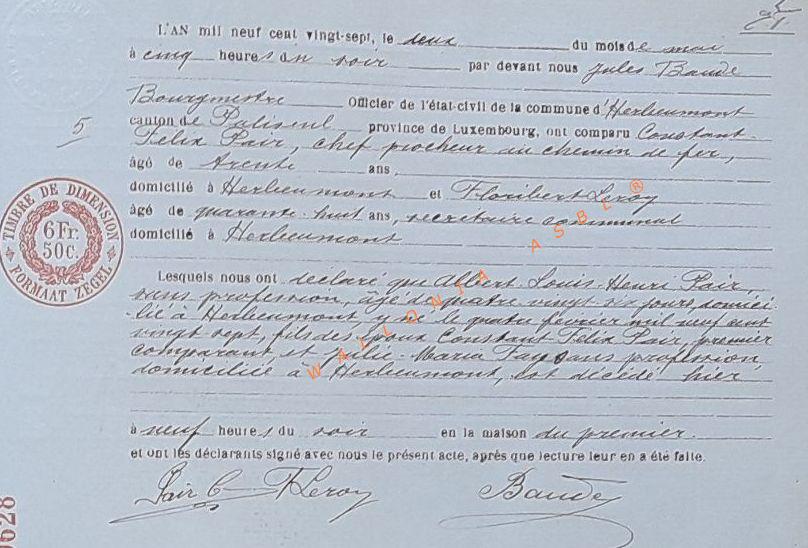 L'AN mil neuf cent vingt-sept, le deux du mois de mai
à cinq heures du soir par devant nous Jules Baude
Bourgmestre Officier de l'état-civil de la commune d'Herbeumont
canton de Paliseul province de Luxembourg, ont comparu Constant
5
Felix Pair, chef piocheur au chemin de fer,
âgé de trente ans,
domicilié à Herbeumont et Floribert Leroy
âgé de quarante-huit ans, secrétaire communal
domicilié à Herbeumont
TIMBRE DE DIMENSION
6 Fr.
50 c.
FORMAAT ZEGEL
WALLONIA ASBL ®
Lesquels nous ont déclaré que Albert-Louis-Henri Pair,
sans profession, âgé de quatre vingt six jours, domici-
lié à Herbeumont, y né le quatre février mil neuf cent
vingt sept, fils des époux Constant Felix Pair, premier
comparant et Julie-Maria sans profession,
domiciliée à Herbeumont, est décédé hier
à neuf heures du soir en la maison du premier.
et ont les déclarants signé avec nous le présent acte, après que lecture leur en a été faite.
Pair C F Leroy Baude
0628